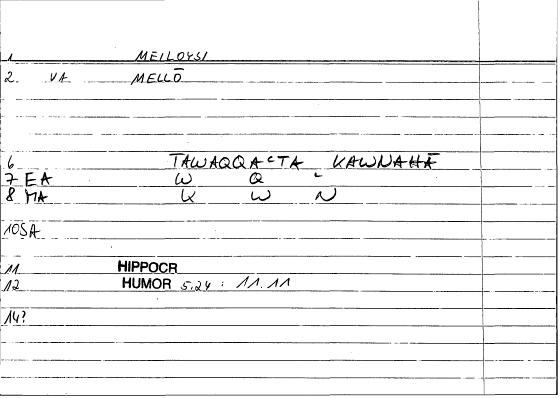 1 MELLOYSI
2. VA MELLŌ
6 TAWAQQAᶜTA KAWNAHĀ
7 EA W Q ᶜ
8 MA K W N
10 SA
11 HIPPOCR
12 HUMOR 5.24 : 11.11
14?